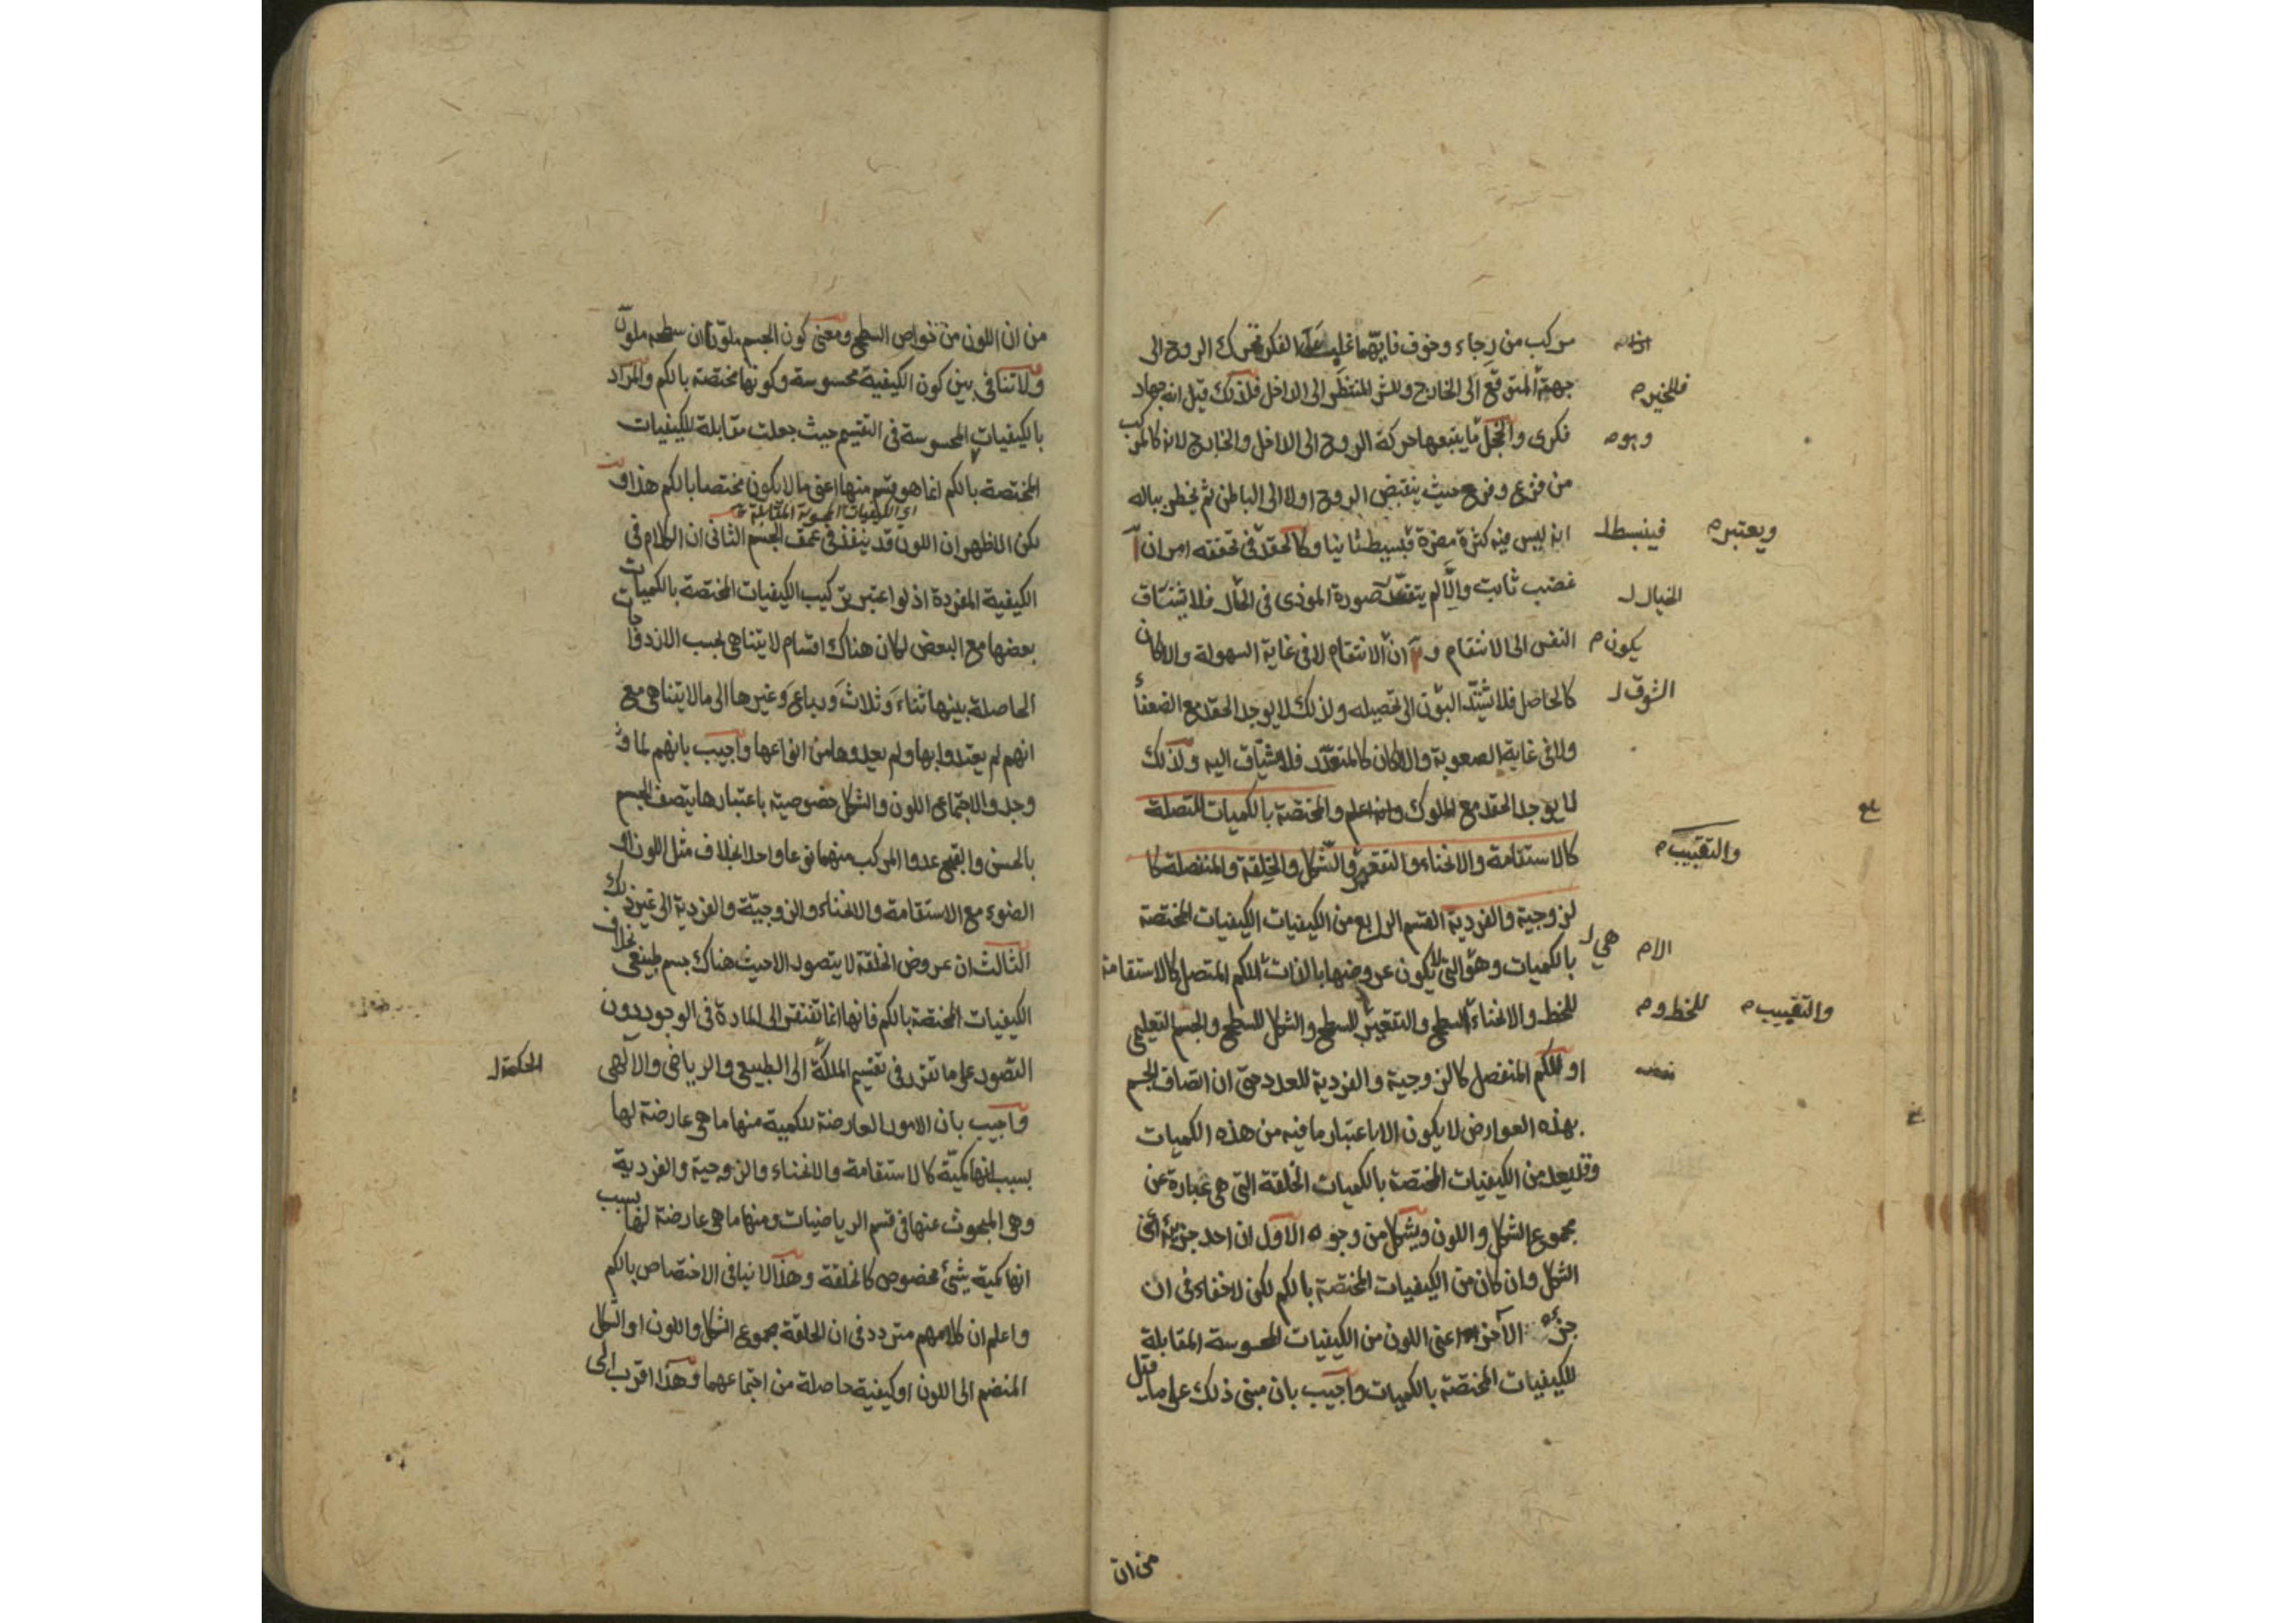 مركب من رجاء وخوف فايهما غلب على الفكر تحرك الروح الى
جهة المتوقع الى الخارج وللشر المنتظر الى الداخل فلذلك قيل انه جهاد
فللخير م
فكرى والخجل ما يتبعها حركة الروح الى الداخل والخارج لانه كالمركب
وهو م
من فزع وفرح حيث ينقبض الروح اولا الى الباطن ثم يخطر بباله
انه ليس فيه كثرة مضرة فبسيط ثانيا وكالحقد فى تحققه امران آ
فينبسط ل
ويعتبر م
غضب ثابت والا لم يتقرر صورة الموذى فى الخال فلا تشتاق
الخيال ل
النفس الى الانتقام و ان الانتقام لا فى غاية السهولة والا كان
يكون م
كالحاصل فلا تشتد الشوق الى تحصيله ولذلك لا يوجد الحقد مع الضعفاء
الشوق ل
ولا فى غاية الصعوبة والا كان كالمتعذر فلا تشتاق اليه ولذلك
لا يوجد الحقد مع الملوك والمختصة بالكميات المتصلة
كالاستقامة والانحناء والتقعير والشكل والخلقة والمنفصلة كا
والتقبيب م
لزوجية والفردية القسم الرابع من الكيفيات الكيفيات المختصة
بالكميات وهو التى لا يكون عروضها بالذات للكم المتصل كالاستقامة
هى ل
الا م
للخط والانحناء للسطح والتقعير للسطح والشكل للسطح والجسم التعليمى
للخط و م
والتقبيب م
او للكم المنفصل كالزوجية والفردية للعدد حتى ان اتصاف الجسم
بهذه العوارض لا يكون الا باعتبار ما فيه من هذه الكميات
وقد يعد من الكيفيات المختصة بالكميات الخلقة التى هى عبارة عن
مجموع الشكل واللون ويشكل من وجوه الاول ان احد جزئيه اعنى
الشكل وان كان من الكيفيات المختصة بالكم لكن لا خفاء فى ان
جزءه الآخر اعنى اللون من الكيفيات المحسوسة المقابلة
للكيفيات المختصة بالكميات واجيب بان مبنى ذلك على ما قيل
من ان
من ان اللون من خواص السطح ومعنى كون الجسم ملونا ان سطحه ملون
ولا تنافى بين كون الكيفية محسوسة وكونها مختصة بالكم والمراد
بالكيفيات المحسوسة فى التقسيم حيث جعلت مقابلة للكيفيات
المختصة بالكم انما هو قسم منها اعنى ما لا يكون مختصا بالكم هذا و
اى الكيفيات المحسوسة المقابلة
لكن الاظهر ان اللون قد ينفذ فى عمق الجسم الثانى ان الكلام فى
الكيفية المفردة اذ لو اعتبر تركيب الكيفيات المختصة بالكميات
بعضها مع البعض لكان هناك اقسام لا يتناهى بحسب الازدواجات
الحاصلة بينها ثناء وثلاث ورباع وغيرها الى ما لا يتناهى مع
انهم لم يعتدوا بها ولم يعدوها من انواعها واجيب بانهم لما و
وجدوا لاجتماع اللون والشكل خصوصية باعتبارها يتصف الجسم
بالحسن والقبح عدوا المركب منهما نوعا واحدا بخلاف مثل اللون او
الضوء مع الاستقامة والانحناء والزوجية والفردية الى غير ذلك
الثالث ان عروض الخلقة لا يتصور الا حيث هناك جسم طبيعى بخلاف
الكيفيات المختصة بالكم فانها انما تفتقر الى المادة فى الوجود دون
التصور على ما تقرر فى تقسيم الملكة الى الطبيعى والرياضى والالهى
الحكمة ل
واجيب بان الامور العارضة للكمية منها ما هى عارضة لها
بسبب انها كمية كالاستقامة والانحناء والزوجية والفردية
وهى المبحوث عنها فى قسم الرياضيات ومنها ما هى عارضة لها بسبب
انها كمية شئ مخصوص كالخلقة وهذا لا ينافى الاختصاص بالكم
واعلم ان كلامهم متردد فى ان الخلقة مجموع الشكل واللون او الشكل
المنضم الى اللون او كيفية حاصلة من اجتماعهما وهذا اقرب الى